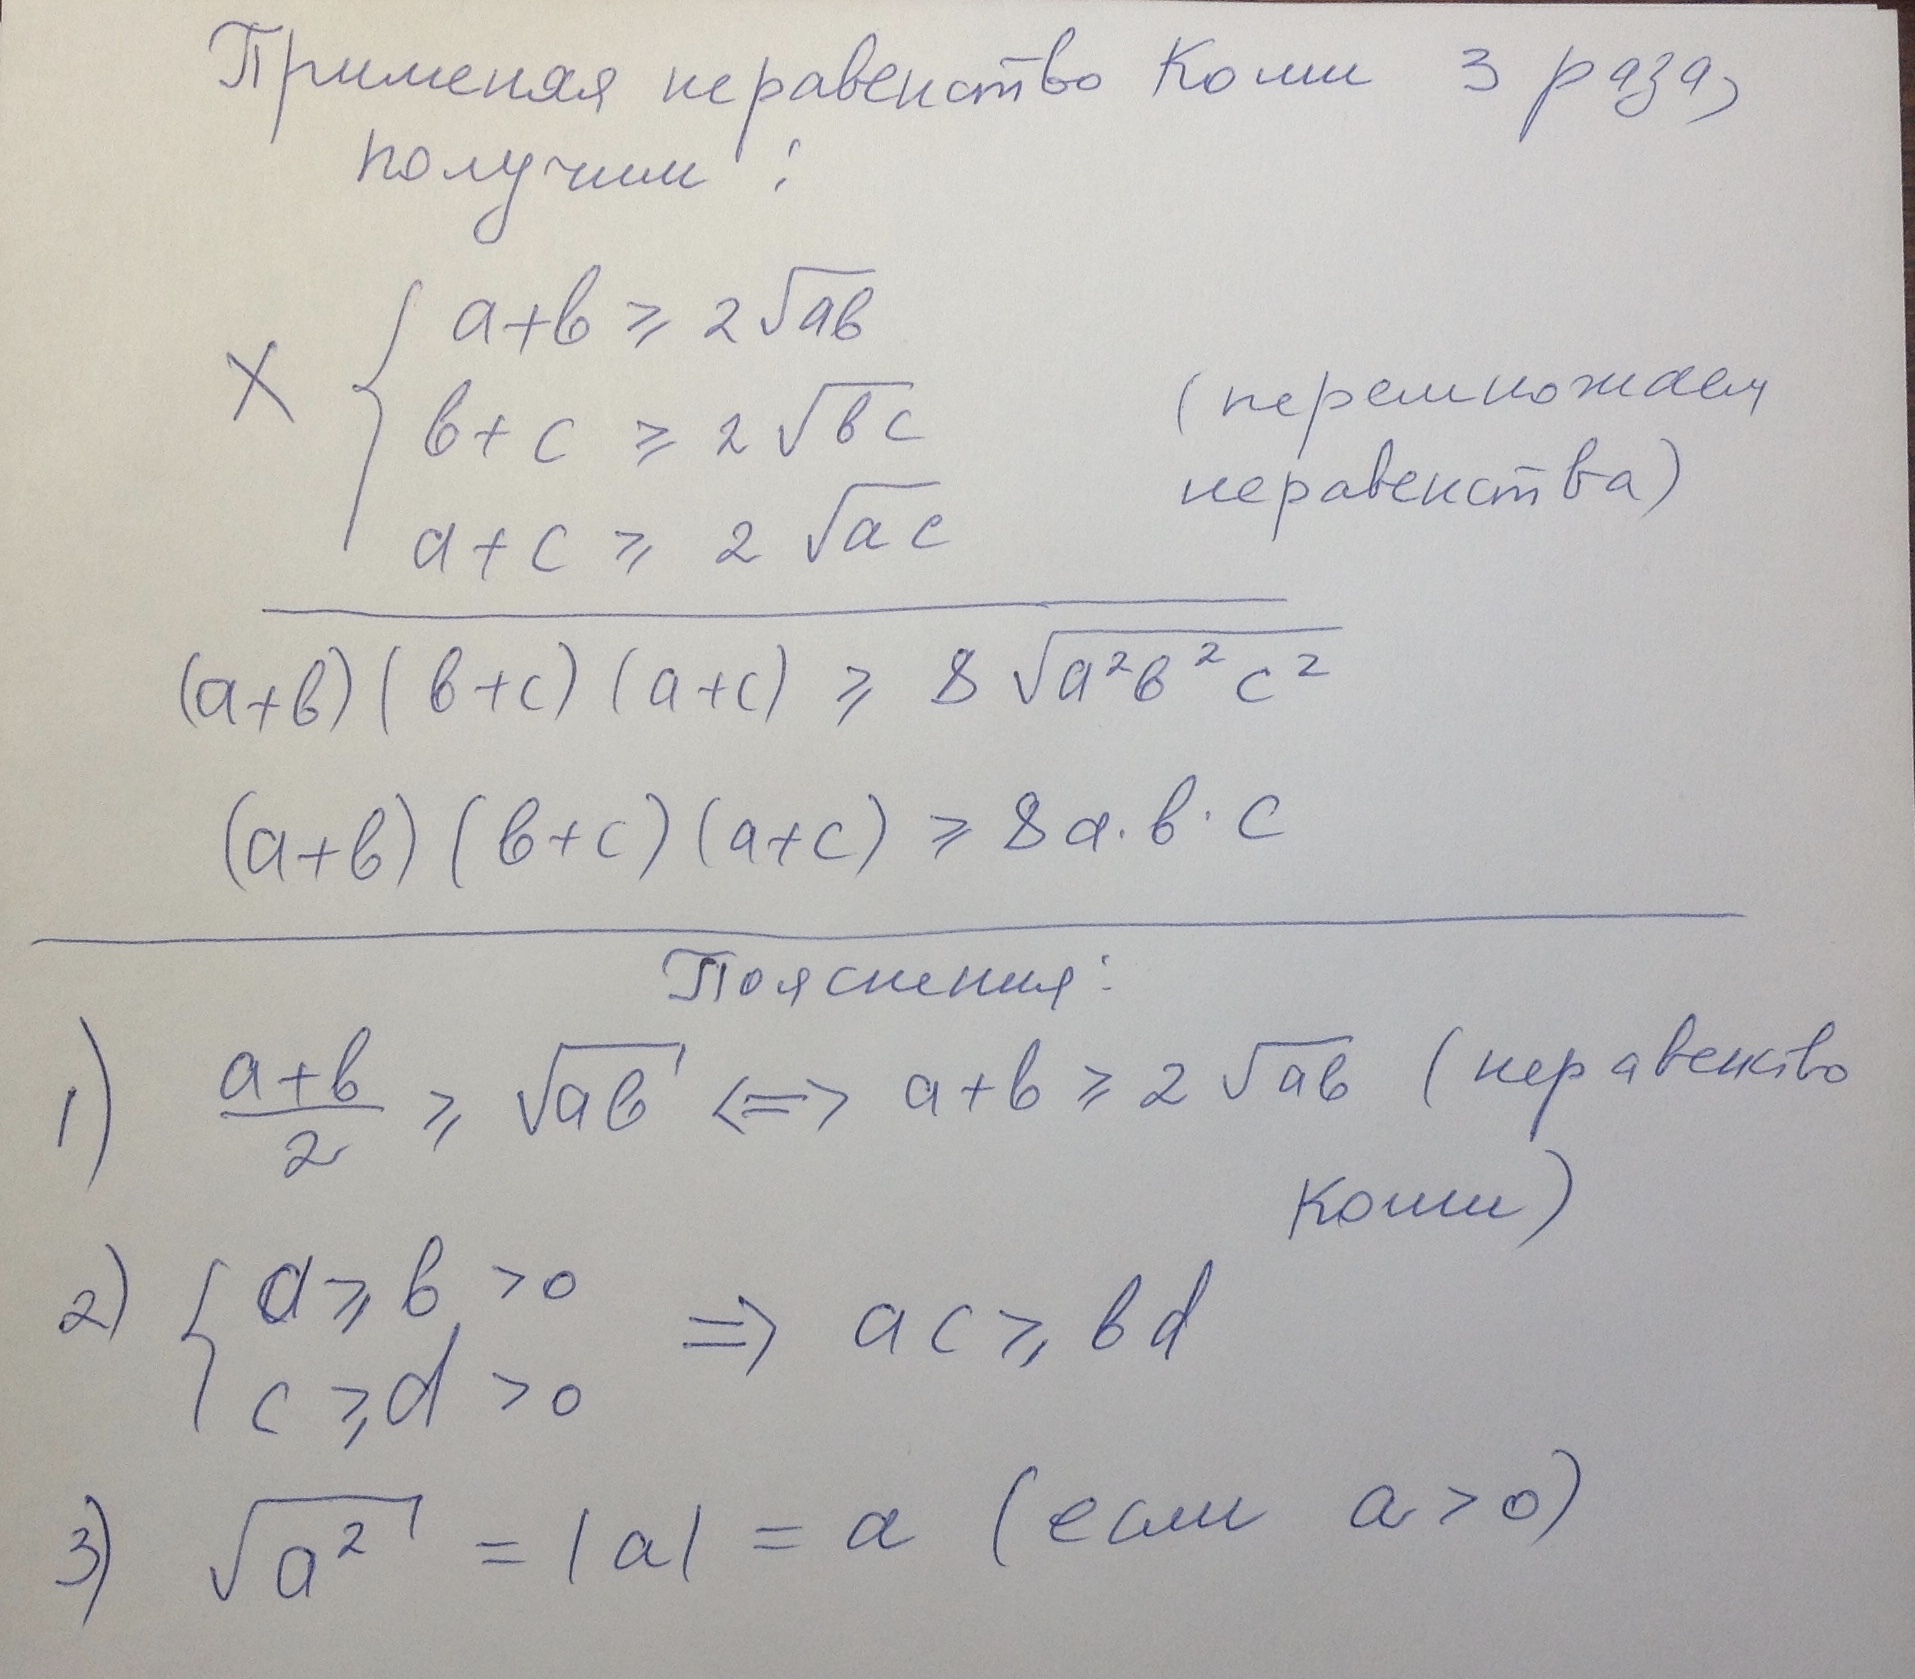 Применяя неравенство Коши 3 раза,
получим:
a+b ⩾ 2√ab
b+c ⩾ 2√bc
a+c ⩾ 2√ac
×
(перемножаем
неравенства)
(a+b)(b+c)(a+c) ⩾ 8√a²b²c²
(a+b)(b+c)(a+c) ⩾ 8a·b·c
Пояснения:
1) (a+b)/2 ⩾ √ab <=> a+b ⩾ 2√ab (неравенство
Коши)
2) { a ⩾ b >0
c ⩾ d >0 => ac ⩾ bd
3) √a² = |a| = a (если a>0)